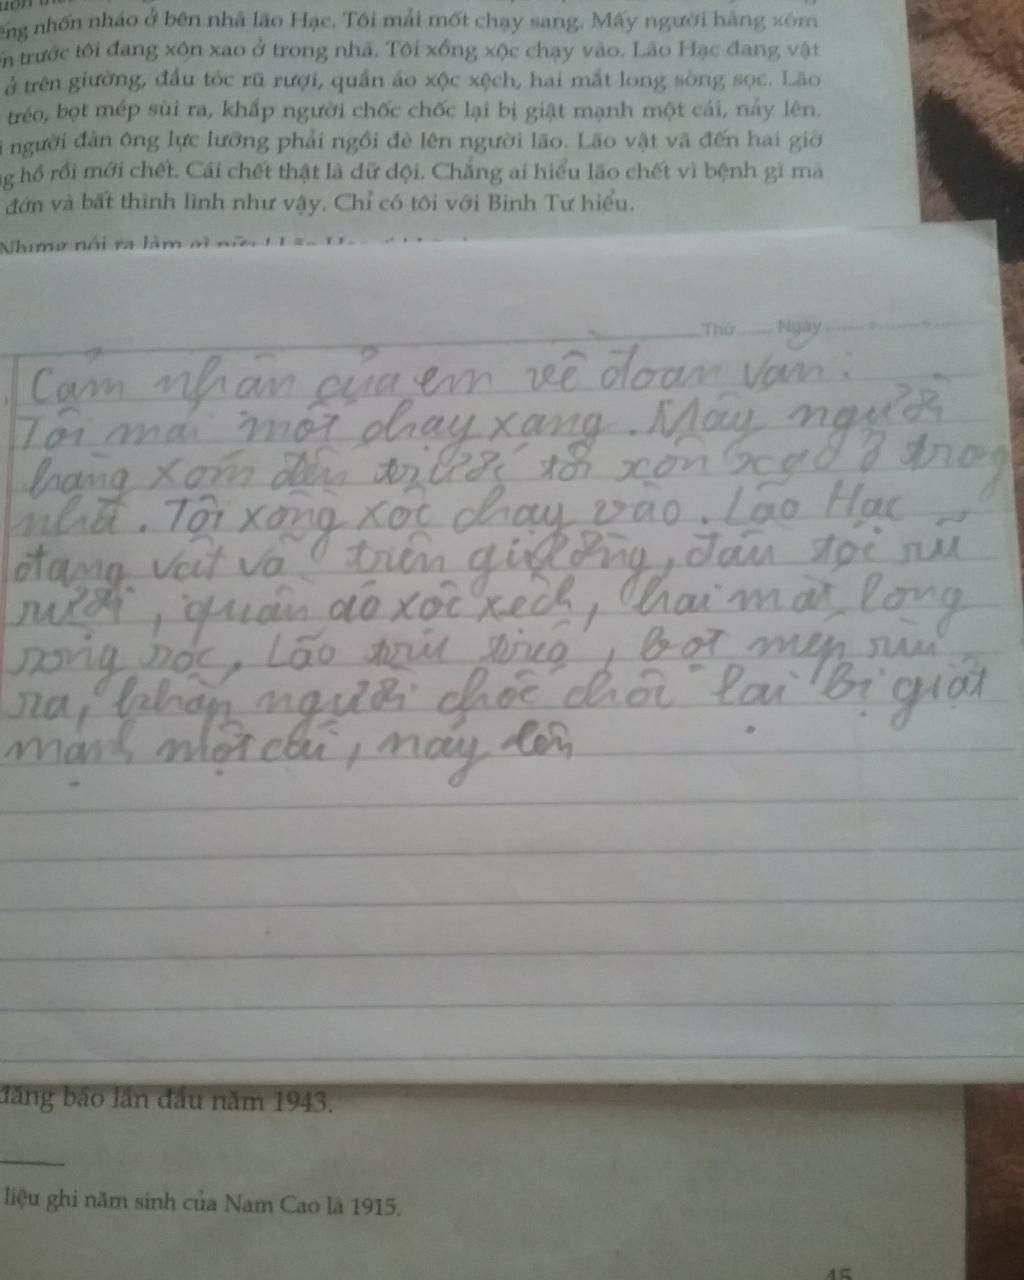 ếng nhốn nháo ở bên nhà lão Hạc. Tôi mải mốt chạy sang. Mấy người hàng xóm
n trước tôi đang xôn xao ở trong nhà. Tôi xồng xộc chạy vào. Lão Hạc đang vật
ở trên giường, đầu tóc rũ rượi, quần áo xộc xệch, hai mắt long sòng sọc. Lão
tréo, bọt mép sùi ra, khắp người chốc chốc lại bị giật mạnh một cái, nảy lên.
người đàn ông lực lưỡng phải ngồi đè lên người lão. Lão vật vã đến hai giờ
g hồ rồi mới chết. Cái chết thật là dữ dội. Chẳng ai hiểu lão chết vì bệnh gì mà
đớn và bất thình lình như vậy. Chỉ có tôi với Binh Tư hiểu.
Nhưng nói ra làm gì nữa! Lão Hạc
Thứ Ngày
Cảm nhận của em về đoan văn:
Tôi mải mốt chay xang. Mấy người
hàng xóm đến trước tôi xôn xao ở trong
nhà. Tôi xồng xộc chạy vào. Lão Hạc
đang vật vã trên giường, đầu tọc rũ
rượi, quần áo xộc xệch, hai mắt long
sòng sọc, Lão tréo, bọt mép sùi
ra, khắp người chốc chốc lại bị giật
mạnh một cái, nảy lên
đăng báo lần đầu năm 1943.
liệu ghi năm sinh của Nam Cao là 1915.
45